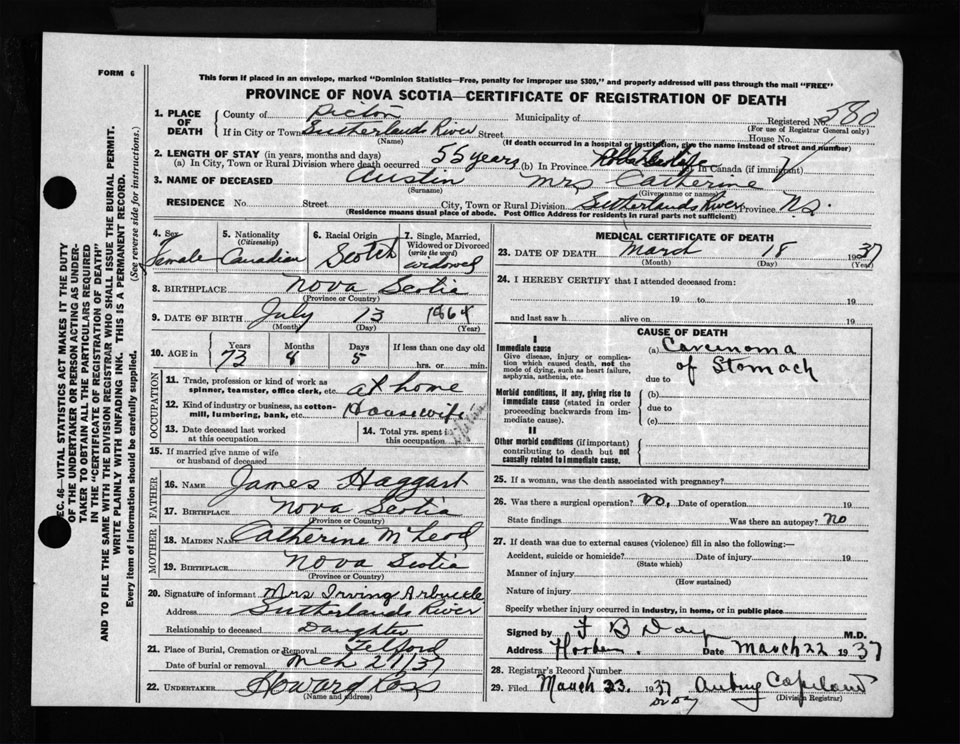 FORM 6
This form if placed in an envelope, marked "Dominion Statistics—Free, penalty for improper use $300," and properly addressed will pass through the mail "FREE"
PROVINCE OF NOVA SCOTIA—CERTIFICATE OF REGISTRATION OF DEATH
1. PLACE OF DEATH
County of Pictou Municipality of Registered No. 580
(For use of Registrar General only)
If in City or Town Sutherlands River Street House No.
(Name) (If death occurred in a hospital or institution, give the name instead of street and number)
2. LENGTH OF STAY (in years, months and days)
(a) In City, Town or Rural Division where death occurred 55 years (b) In Province in Canada (if immigrant)
3. NAME OF DECEASED Austin Mrs Catherine
(Surname) (Given name or names)
RESIDENCE No. Street City, Town or Rural Division Sutherlands River Province N.S.
(Residence means usual place of abode. Post Office Address for residents in rural parts not sufficient)
4. Sex Female
5. Nationality (Citizenship) Canadian
6. Racial Origin Scotch
7. Single, Married, Widowed or Divorced (write the word) widowed
8. BIRTHPLACE Nova Scotia
(Province or Country)
9. DATE OF BIRTH July 13 1864
(Month) (Day) (Year)
10. AGE in Years 73 Months 8 Days 5 If less than one day old hrs. or min.
OCCUPATION
11. Trade, profession or kind of work as spinner, teamster, office clerk, etc. at home
12. Kind of industry or business, as cotton-mill, lumbering, bank, etc. Housewife
13. Date deceased last worked at this occupation
14. Total yrs. spent in this occupation
15. If married give name of wife or husband of deceased
FATHER
16. NAME James Haggart
17. BIRTHPLACE Nova Scotia
(Province or Country)
MOTHER
18. MAIDEN NAME Catherine McLeod
19. BIRTHPLACE Nova Scotia
(Province or Country)
20. Signature of informant Mrs Irving Arbuckle
Address Sutherlands River
Relationship to deceased Daughter
21. Place of Burial, Cremation or Removal Telford
Date of burial or removal Mch 21/37
22. UNDERTAKER Howard Ross
(Name and address)
MEDICAL CERTIFICATE OF DEATH
23. DATE OF DEATH March 18 1937
(Month) (Day) (Year)
24. I HEREBY CERTIFY that I attended deceased from:
19 to 19
and last saw h alive on 19
CAUSE OF DEATH
I
Immediate cause
Give disease, injury or complication which caused death, not the mode of dying, such as heart failure, asphyxia, asthenia, etc.
(a) Carcinoma of Stomach
due to
Morbid conditions, if any, giving rise to immediate cause (stated in order proceeding backwards from immediate cause).
(b)
due to
(c)
II
Other morbid conditions (if important) contributing to death but not causally related to immediate cause.
25. If a woman, was the death associated with pregnancy?
26. Was there a surgical operation? no, Date of operation 19
State findings Was there an autopsy? no
27. If death was due to external causes (violence) fill in also the following:—
Accident, suicide or homicide? Date of injury 19
(State which)
Manner of injury
(How sustained)
Nature of injury
Specify whether injury occurred in industry, in home, or in public place
Signed by F B Day M.D.
Address Date March 22 1937
28. Registrar's Record Number
29. Filed March 23. 1937 Aubrey Copeland
(Division Registrar)
SEC. 46—VITAL STATISTICS ACT MAKES IT THE DUTY
OF THE UNDERTAKER OR PERSON ACTING AS UNDERTAKER
TO OBTAIN ALL THE PARTICULARS REQUIRED
IN THE "CERTIFICATE OF REGISTRATION OF DEATH"
AND TO FILE THE SAME WITH THE DIVISION REGISTRAR WHO SHALL ISSUE THE BURIAL PERMIT.
WRITE PLAINLY WITH UNFADING INK. THIS IS A PERMANENT RECORD.
Every item of Information should be carefully supplied. (See reverse side for instructions.)